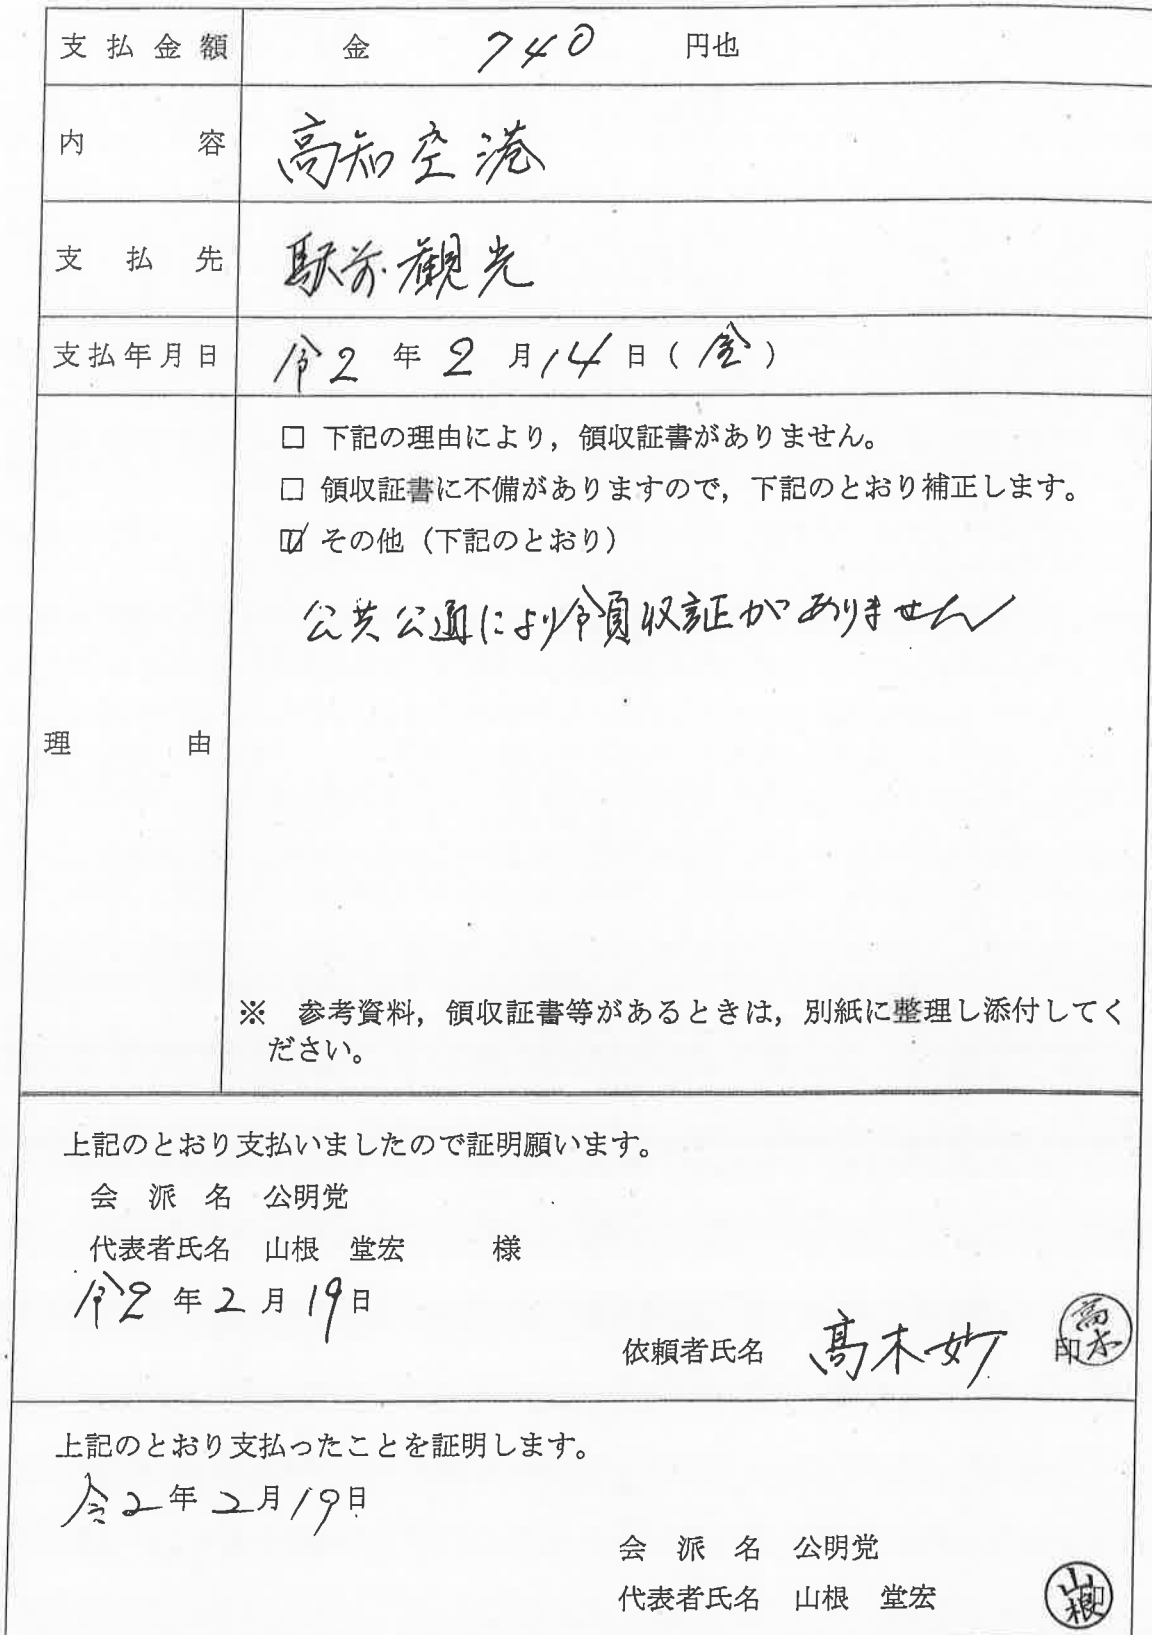 支払金額 金 740 円也
内容 高知空港
支払先 駅前観光
支払年月日 令2年2月14日(金)
□ 下記の理由により，領収証書がありません。
□ 領収証書に不備がありますので，下記のとおり補正します。
☑ その他（下記のとおり）
公共公通により領収証がありません
理由
※ 参考資料，領収証書等があるときは，別紙に整理し添付してく
ださい。
上記のとおり支払いましたので証明願います。
会派名 公明党
代表者氏名 山根 堂宏 様
令2年2月19日
依頼者氏名 髙木妙 印 高木
上記のとおり支払ったことを証明します。
令2年2月19日
会派名 公明党
代表者氏名 山根 堂宏 印 山根